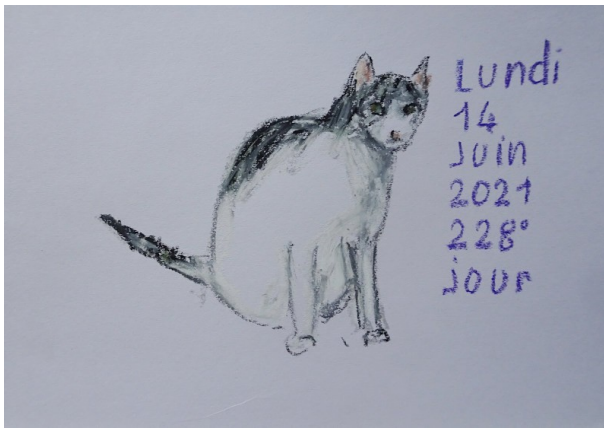 Lundi
14
Juin
2021
228°
jour